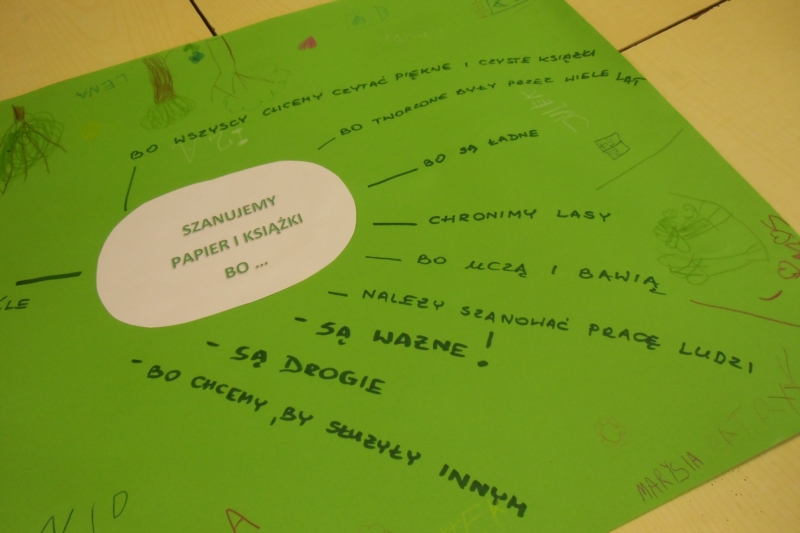 SZANUJEMY
PAPIER I KSIĄŻKI
BO ...
BO WSZYSCY CHCEMY CZYTAĆ PIĘKNE I CZYSTE KSIĄŻKI
BO TWORZONE BYŁY PRZEZ WIELE LAT
BO SĄ ŁADNE
CHRONIMY LASY
BO UCZĄ I BAWIĄ
NALEŻY SZANOWAĆ PRACĘ LUDZI
- SĄ WAŻNE!
- SĄ DROGIE
- BO CHCEMY, BY SŁUŻYŁY INNYM
LENA
MARYSIA